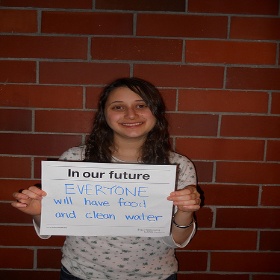 In our future
EVERYONE
will have food
and clean water